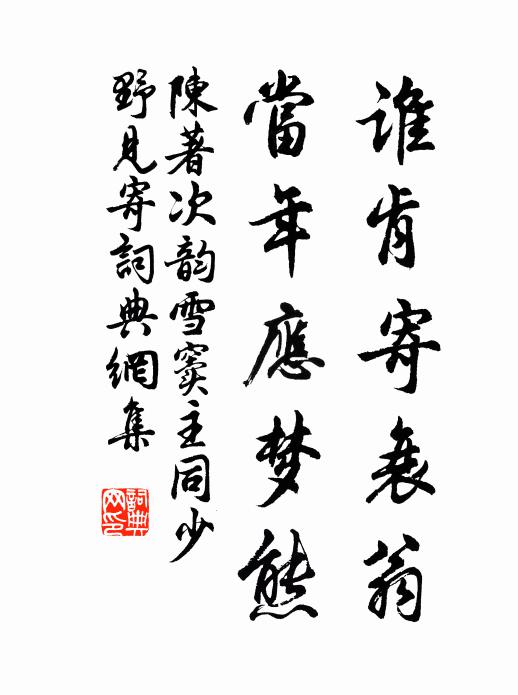 誰肯寄衰翁
當年應梦熊
陳著次韵雪竇主同少
野見寄詞典網集
詞典网印